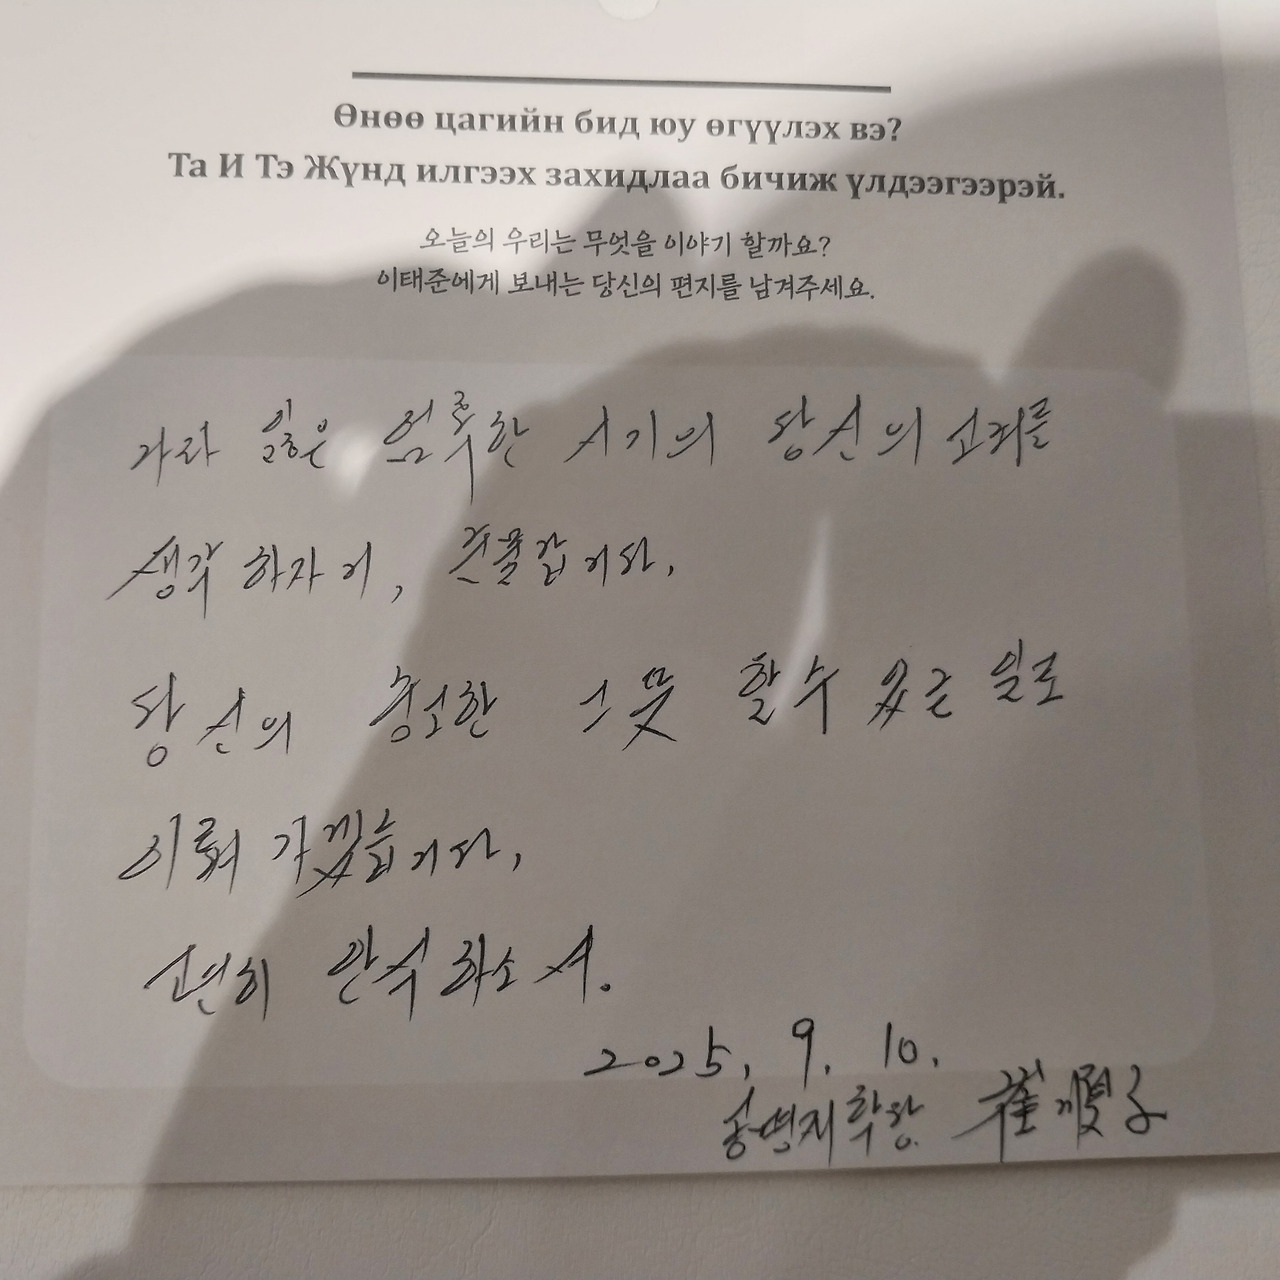 Өнөө цагийн бид юу өгүүлэх вэ?
Та И Тэ Жүнд илгээх захидлаа бичиж үлдээгээрэй.
오늘의 우리는 무엇을 이야기 할까요?
이태준에게 보내는 당신의 편지를 남겨주세요.
나라 잃은 엄혹한 시기의 당신의 고뇌를
생각하자니, 눈물납니다,
당신의 숭고한 그 뜻 할 수 있는 일로
이뤄 가겠습니다,
고연히 안식하소서.
2025. 9. 10.
崔順子